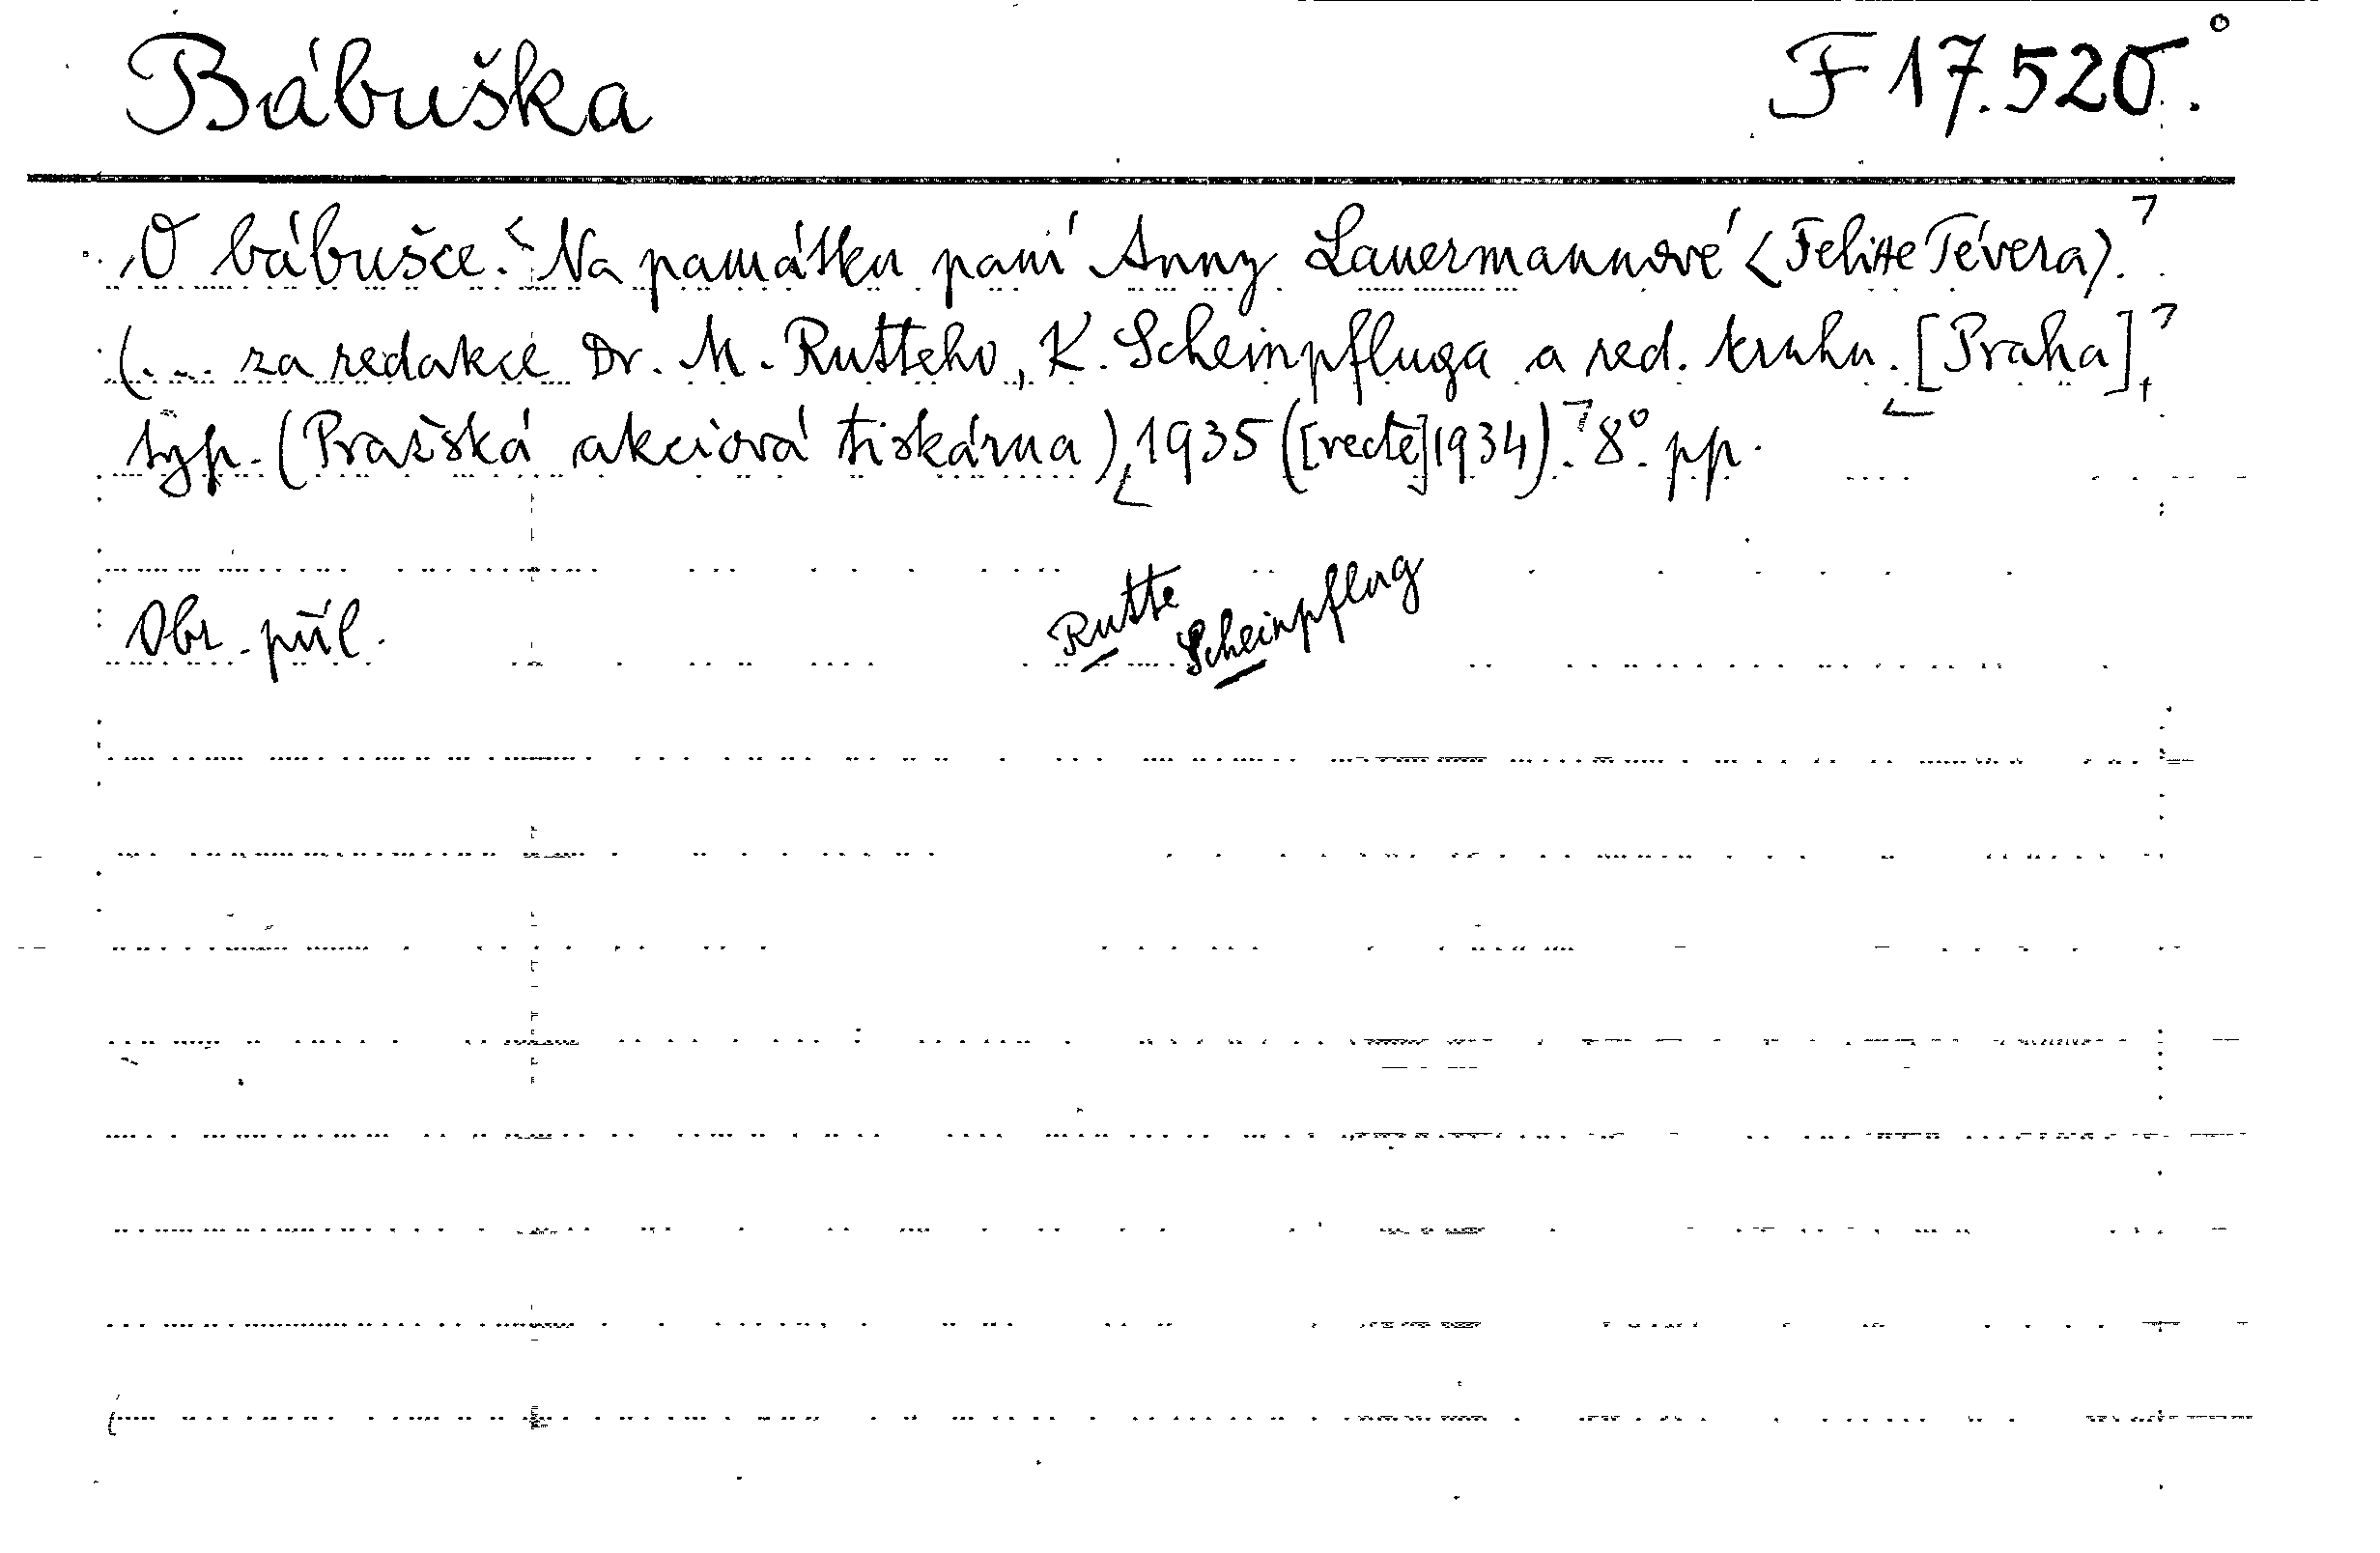 Bábuška F 17.520.°
O bábušce. Na památku paní Anny Lauermannové (Felixe Tévera).
(... za redakce Dr. M. Rutteho, K. Scheinpfluga a red. kruhu. [Praha],
typ. (Pražská akciová tiskárna), 1935 ([recte] 1934). 8°. pp.
Obr. příl.
Rutte
Scheinpflug